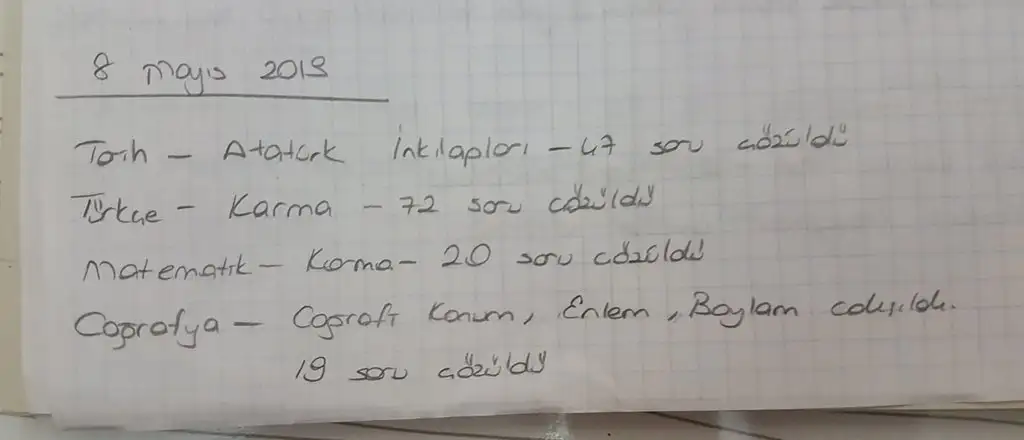 8 Mayıs 2019
Tarih - Atatürk İnkılapları - 47 soru çözüldü
Türkçe - Karma - 72 soru çözüldü
Matematik - Karma - 20 soru çözüldü
Coğrafya - Coğrafi Konum, Enlem, Boylam çalışıldı.
19 soru çözüldü